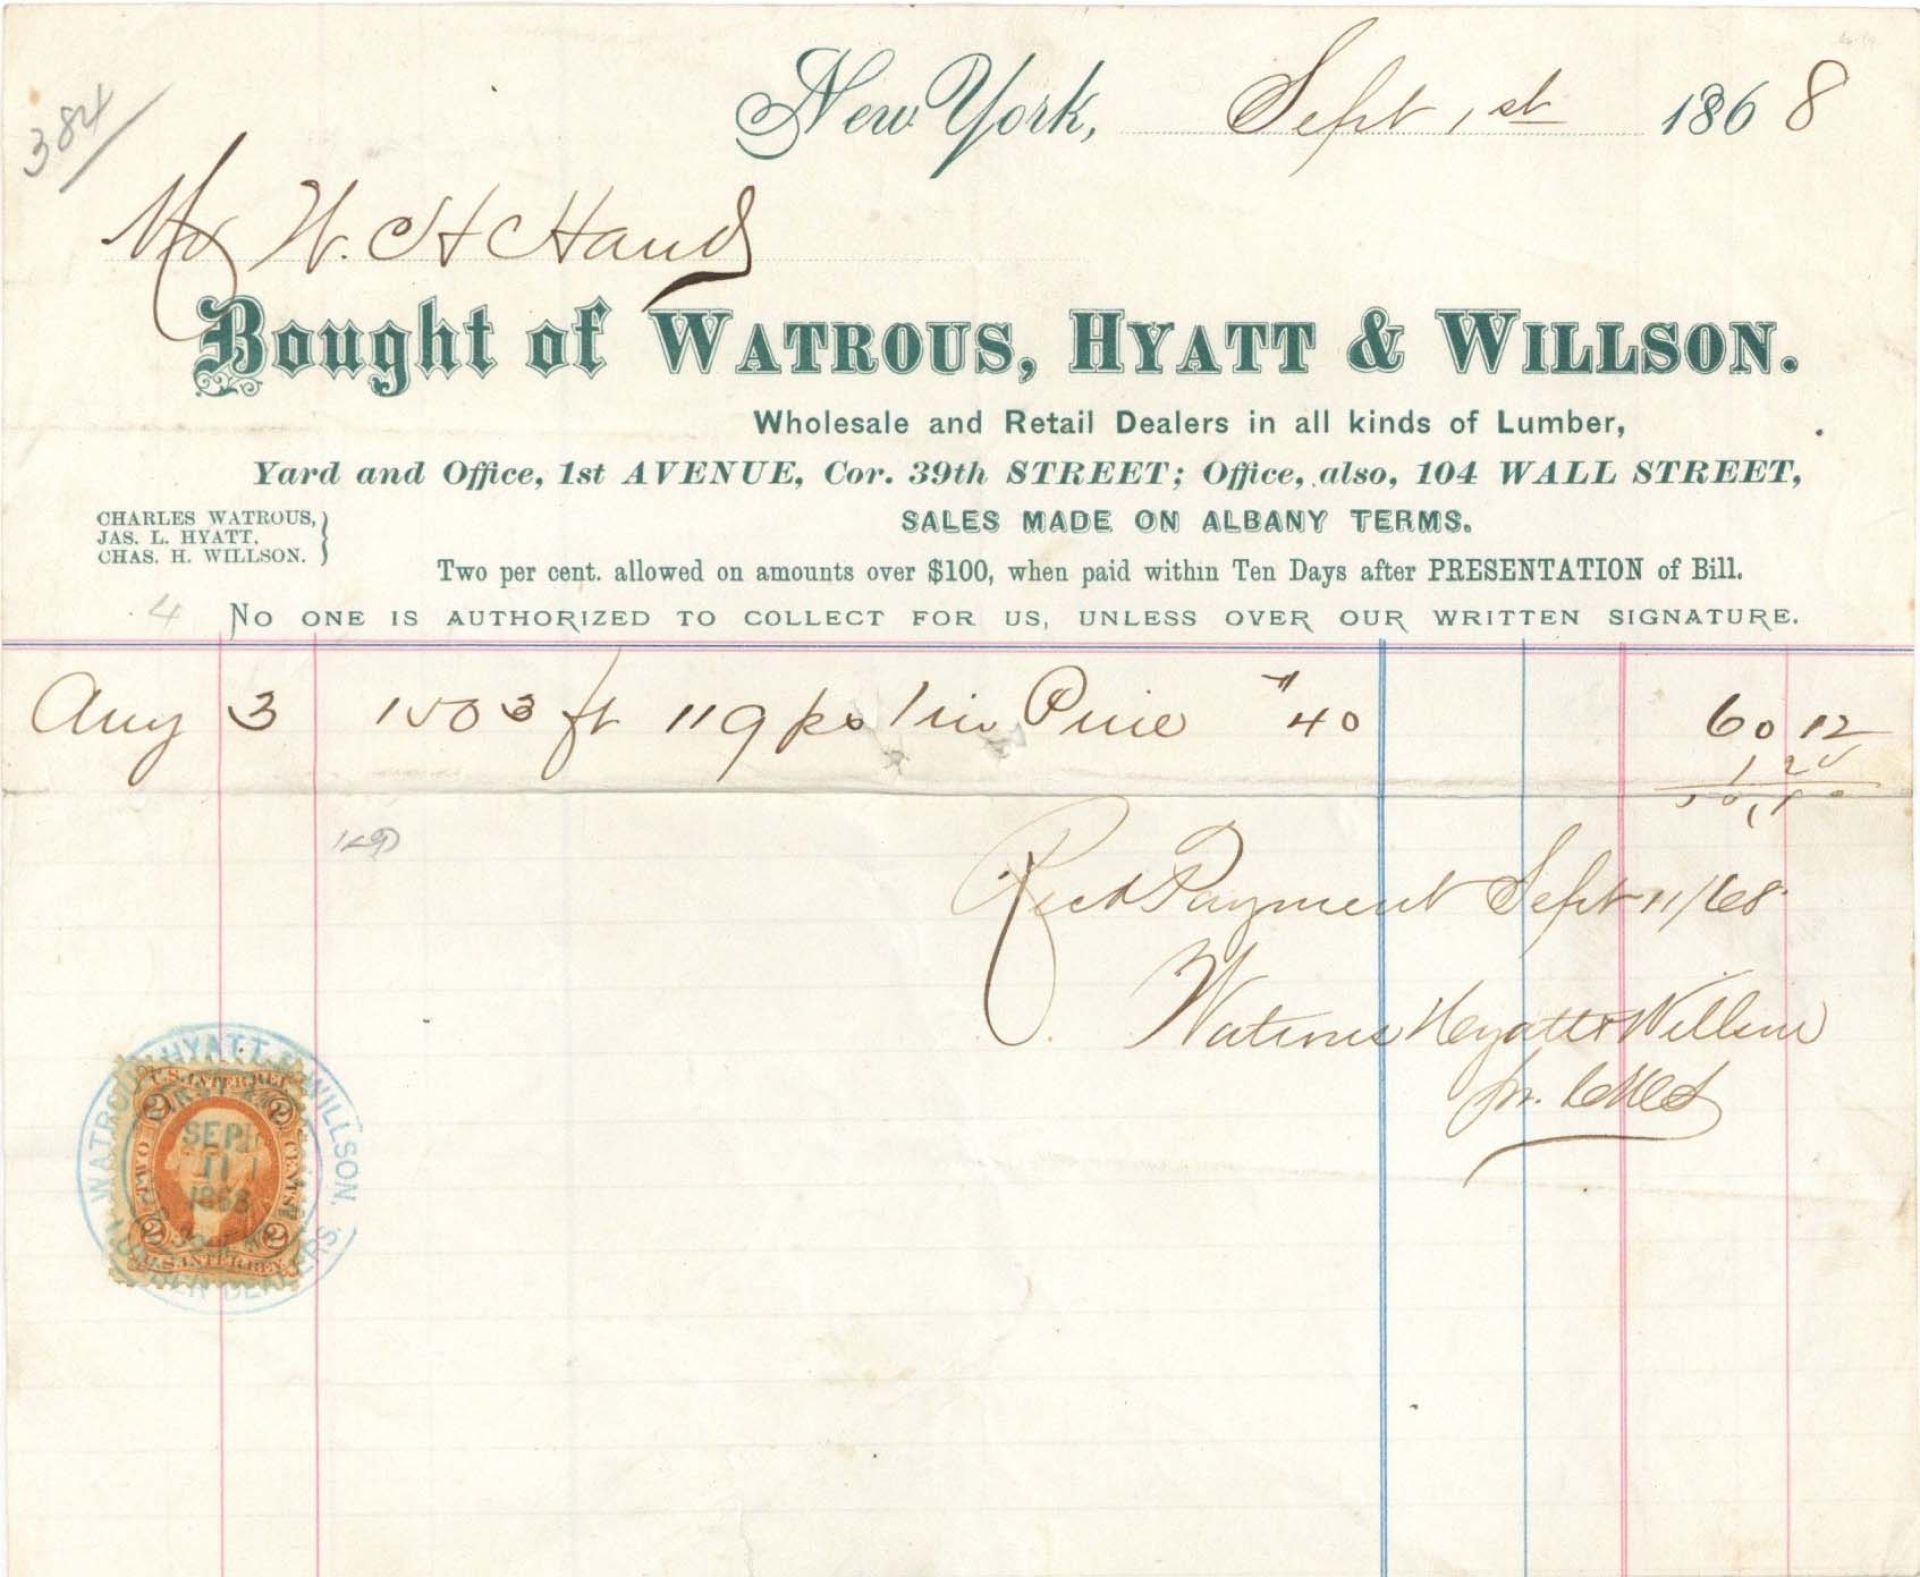 384
New York, Sept 1st 1868
Mr W. H Hand
Bought of WATROUS, HYATT & WILLSON.
Wholesale and Retail Dealers in all kinds of Lumber,
Yard and Office, 1st AVENUE, Cor. 39th STREET; Office, also, 104 WALL STREET,
CHARLES WATROUS,
JAS. L. HYATT.
CHAS. H. WILLSON.
SALES MADE ON ALBANY TERMS.
Two per cent. allowed on amounts over $100, when paid within Ten Days after PRESENTATION of Bill.
4
NO ONE IS AUTHORIZED TO COLLECT FOR US, UNLESS OVER OUR WRITTEN SIGNATURE.
Aug 3 1503 ft 119 ps 1 in Pine $40 60 12
1 20
Recd Payment Sept 11/68
Watrous Hyatt & Willson
WATROUS, HYATT & WILLSON.
LUMBER DEALERS.
U.S. INTER. REV.
2 2
SEP
11
1868
TWO CENTS
2 2
U.S. INTER. REV.